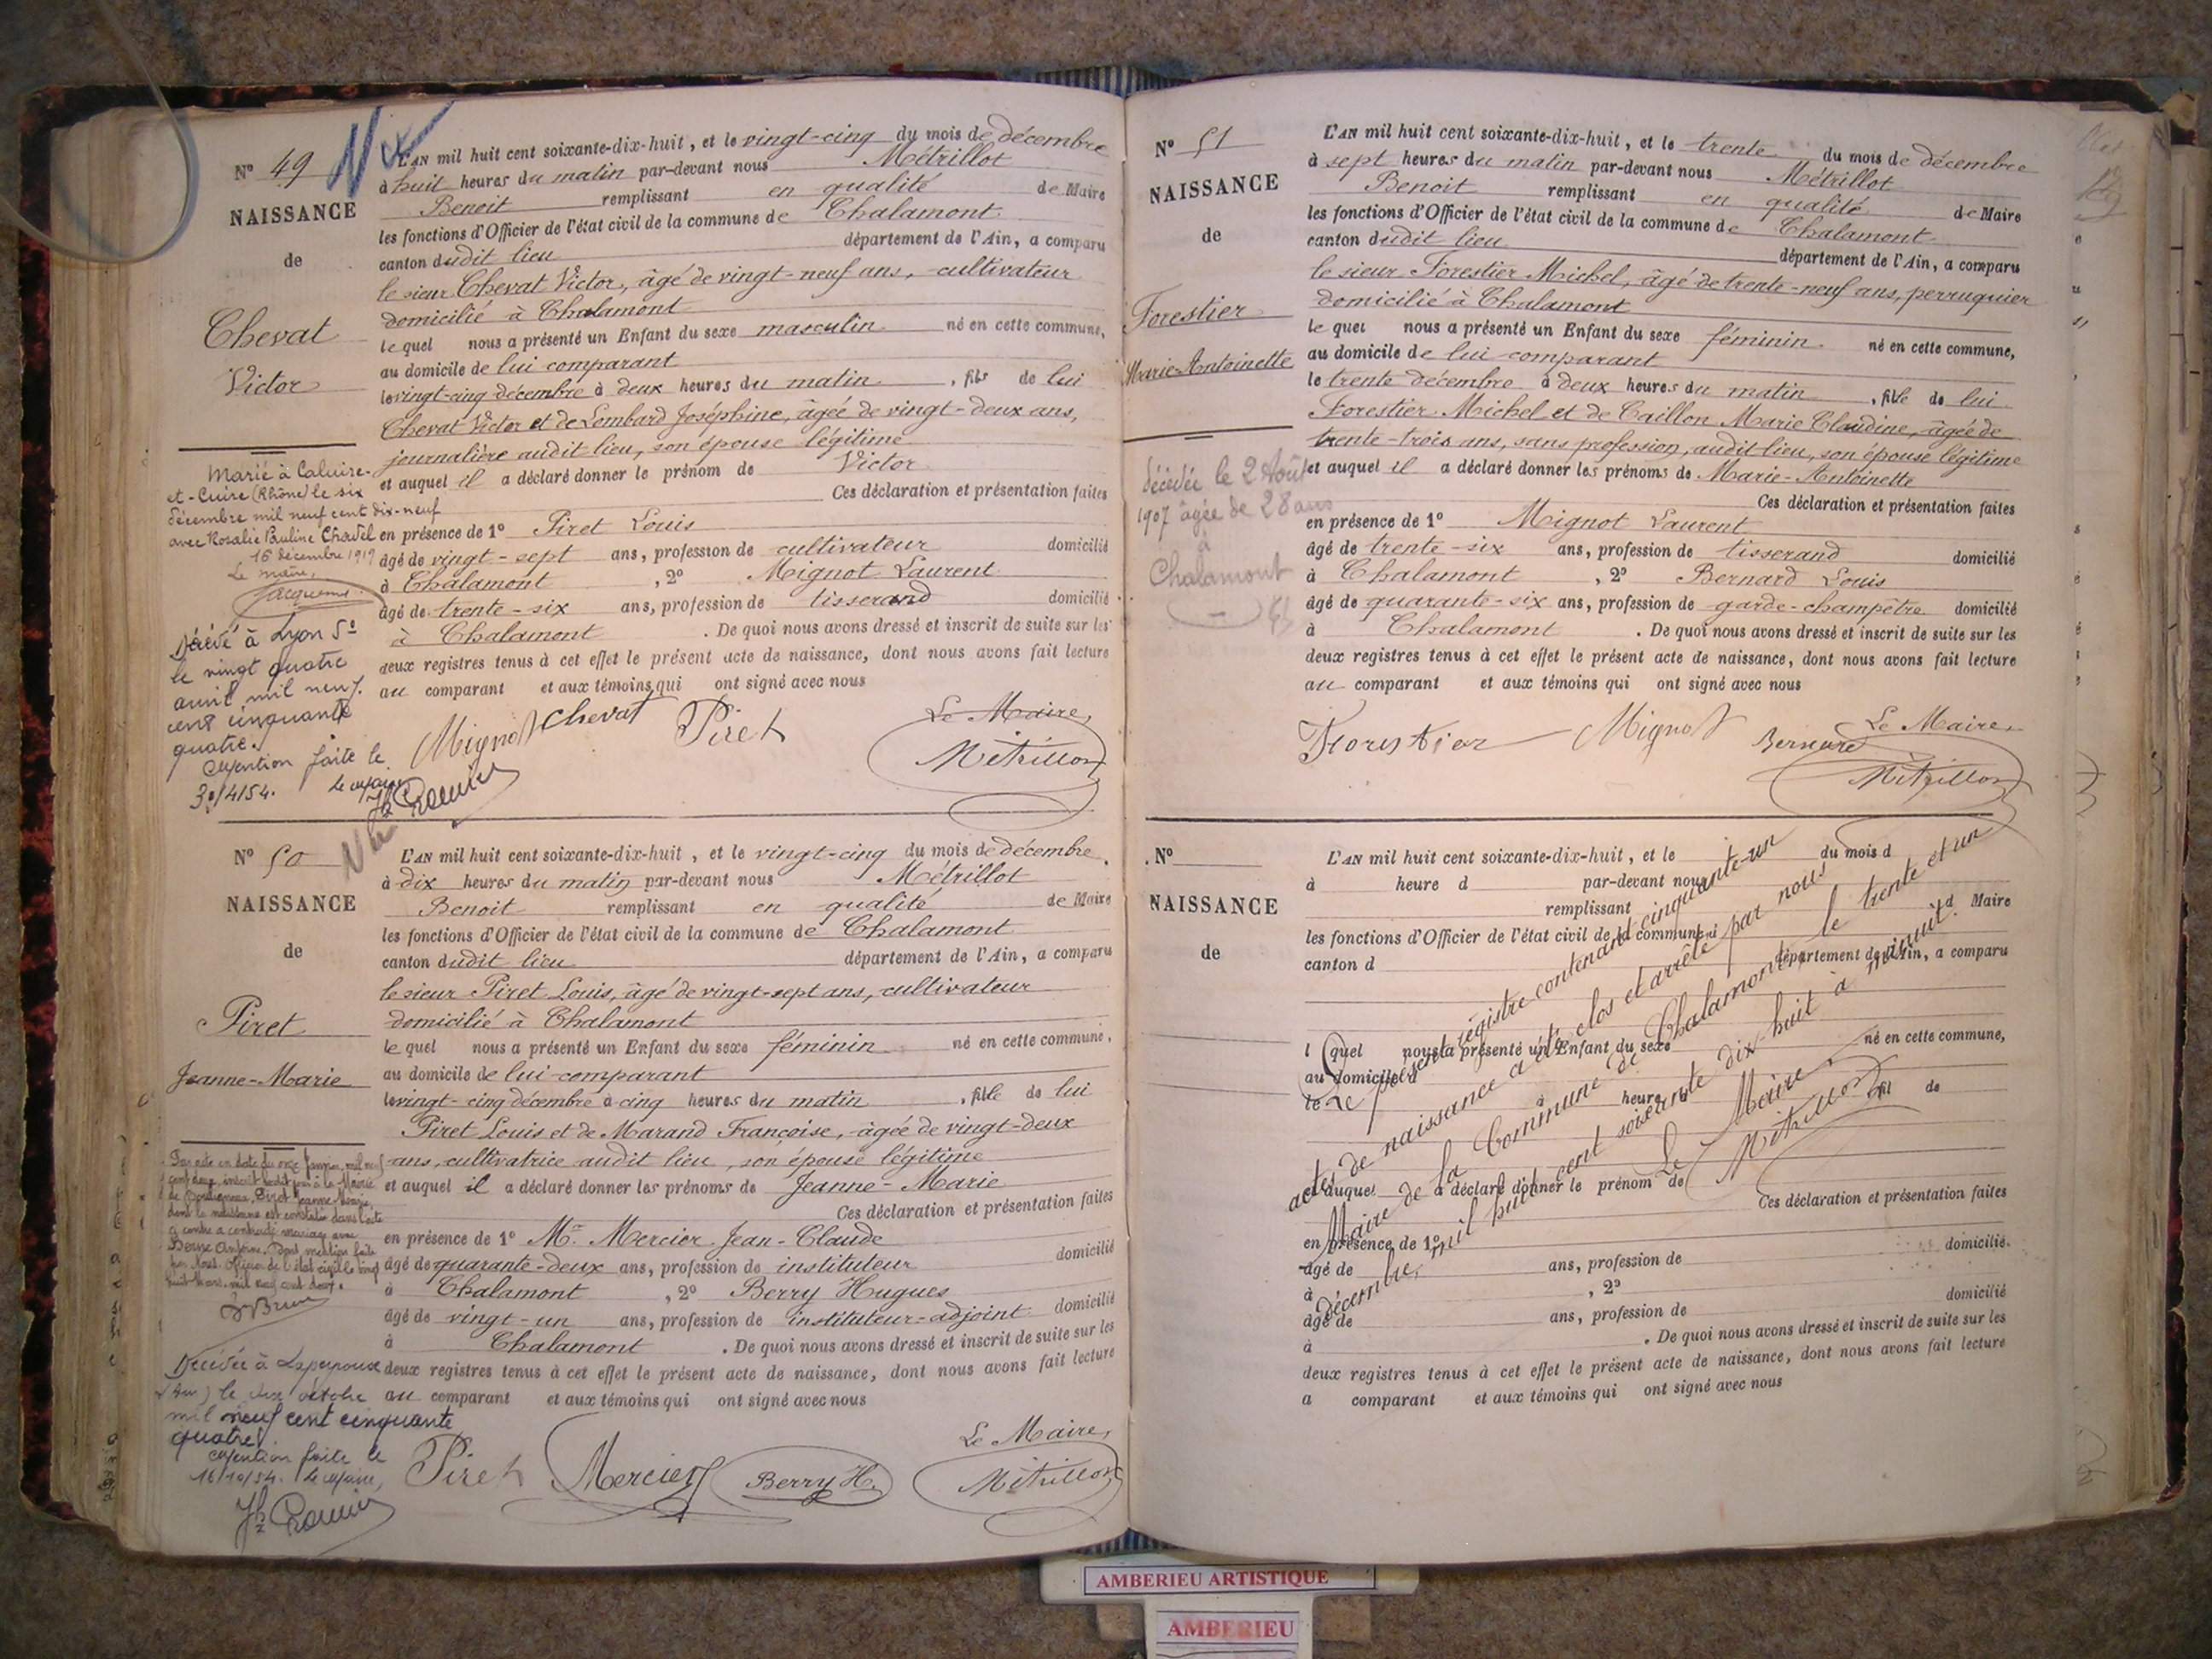 N° 49
NAISSANCE
de
Chevat
Victor
L'AN mil huit cent soixante-dix-huit, et le vingt-cinq du mois de décembre
à huit heures du matin par-devant nous Métrillot
Benoit remplissant en qualité de Maire
les fonctions d'Officier de l'état civil de la commune de Chalamont
canton dudit lieu département de l'Ain, a comparu
le sieur Chevat Victor, âgé de vingt-neuf ans, cultivateur
domicilié à Chalamont
le quel nous a présenté un Enfant du sexe masculin né en cette commune,
au domicile de lui comparant
le vingt-cinq décembre à deux heures du matin, fils de lui
Chevat Victor et de Lombard Joséphine, âgée de vingt-deux ans,
journalière audit lieu, son épouse légitime
et auquel il a déclaré donner le prénom de Victor
Ces déclaration et présentation faites
en présence de 1° Piret Louis
âgé de vingt-sept ans, profession de cultivateur domicilié
à Chalamont, 2° Mignot Laurent
âgé de trente-six ans, profession de tisserand domicilié
à Chalamont. De quoi nous avons dressé et inscrit de suite sur les
deux registres tenus à cet effet le présent acte de naissance, dont nous avons fait lecture
au comparant et aux témoins qui ont signé avec nous
Mignot Chevat Piret Le Maire,
Métrillot
Marié à Caluire-
et-Cuire (Rhône) le six
décembre mil neuf cent dix-neuf
avec Rosalie Pauline Chavel
16 décembre 1919
Le maire,
Jacquemet
Décédé à Lyon 5e
le vingt quatre
avril mil neuf
cent cinquante
quatre.
Mention faite le
30/4/54. le maire
N° 50
NAISSANCE
de
Piret
Jeanne-Marie
L'AN mil huit cent soixante-dix-huit, et le vingt-cinq du mois de décembre
à dix heures du matin par-devant nous Métrillot
Benoit remplissant en qualité de Maire
les fonctions d'Officier de l'état civil de la commune de Chalamont
canton dudit lieu département de l'Ain, a comparu
le sieur Piret Louis, âgé de vingt-sept ans, cultivateur
domicilié à Chalamont
le quel nous a présenté un Enfant du sexe féminin né en cette commune,
au domicile de lui comparant
le vingt-cinq décembre à cinq heures du matin, fille de lui
Piret Louis et de Marand Françoise, âgée de vingt-deux
ans, cultivatrice audit lieu, son épouse légitime
et auquel il a déclaré donner les prénoms de Jeanne-Marie
Ces déclaration et présentation faites
en présence de 1° Mr. Mercier Jean-Claude
âgé de quarante-deux ans, profession de instituteur domicilié
à Chalamont, 2° Berry Hugues
âgé de vingt-un ans, profession de instituteur-adjoint domicilié
à Chalamont. De quoi nous avons dressé et inscrit de suite sur les
deux registres tenus à cet effet le présent acte de naissance, dont nous avons fait lecture
au comparant et aux témoins qui ont signé avec nous
Piret Mercier Berry H. Le Maire,
Métrillot
Par acte en date du onze Janvier mil neuf
cent deux, inscrit ledit jour à la Mairie
de Piret Jeanne Marie
dont la naissance est constatée dans l'acte
ci contre a contracté mariage avec
Dont mention faite
par Nous Officier de l'état civil le vingt
huit mars mil neuf cent deux.
J Brun
Décédée à Lapeyrouse
(Ain) le dix octobre
mil neuf cent cinquante
quatre.
Mention faite le
16/10/54. le maire,
N° 51
NAISSANCE
de
Forestier
Marie-Antoinette
L'AN mil huit cent soixante-dix-huit, et le trente du mois de décembre
à sept heures du matin par-devant nous Métrillot
Benoit remplissant en qualité de Maire
les fonctions d'Officier de l'état civil de la commune de Chalamont
canton dudit lieu département de l'Ain, a comparu
le sieur Forestier Michel, âgé de trente-neuf ans, perruquier
domicilié à Chalamont
le quel nous a présenté un Enfant du sexe féminin né en cette commune,
au domicile de lui comparant
le trente décembre à deux heures du matin, fille de lui
Forestier Michel et de Caillon Marie Claudine, âgée de
trente-trois ans, sans profession, audit lieu, son épouse légitime
et auquel il a déclaré donner les prénoms de Marie-Antoinette
Ces déclaration et présentation faites
en présence de 1° Mignot Laurent
âgé de trente-six ans, profession de tisserand domicilié
à Chalamont, 2° Bernard Louis
âgé de quarante-six ans, profession de garde-champêtre domicilié
à Chalamont. De quoi nous avons dressé et inscrit de suite sur les
deux registres tenus à cet effet le présent acte de naissance, dont nous avons fait lecture
au comparant et aux témoins qui ont signé avec nous
Forestier Mignot Bernard Le Maire,
Métrillot
Décédée le 2 Août
1907 âgée de 28 ans
à
Chalamont
N°
NAISSANCE
de
L'AN mil huit cent soixante-dix-huit, et le du mois d
à heure d par-devant nous
remplissant d Maire
les fonctions d'Officier de l'état civil de la commune d
canton d département de l'Ain, a comparu
l quel nous a présenté un Enfant du sexe né en cette commune,
au domicile d
le à heure d fil de
et auquel a déclaré donner le prénom de
Ces déclaration et présentation faites
en présence de 1°
âgé de ans, profession de domicilié
à , 2°
âgé de ans, profession de domicilié
à . De quoi nous avons dressé et inscrit de suite sur les
deux registres tenus à cet effet le présent acte de naissance, dont nous avons fait lecture
a comparant et aux témoins qui ont signé avec nous
Le présent régistre contenant cinquante-un
actes de naissance a été clos et arrêté par nous
Maire de la Commune de Chalamont, le trente et un
décembre, mil huit cent soixante dix-huit à minuit.
Le Maire
Métrillot
AMBERIEU ARTISTIQUE
AMBERIEU